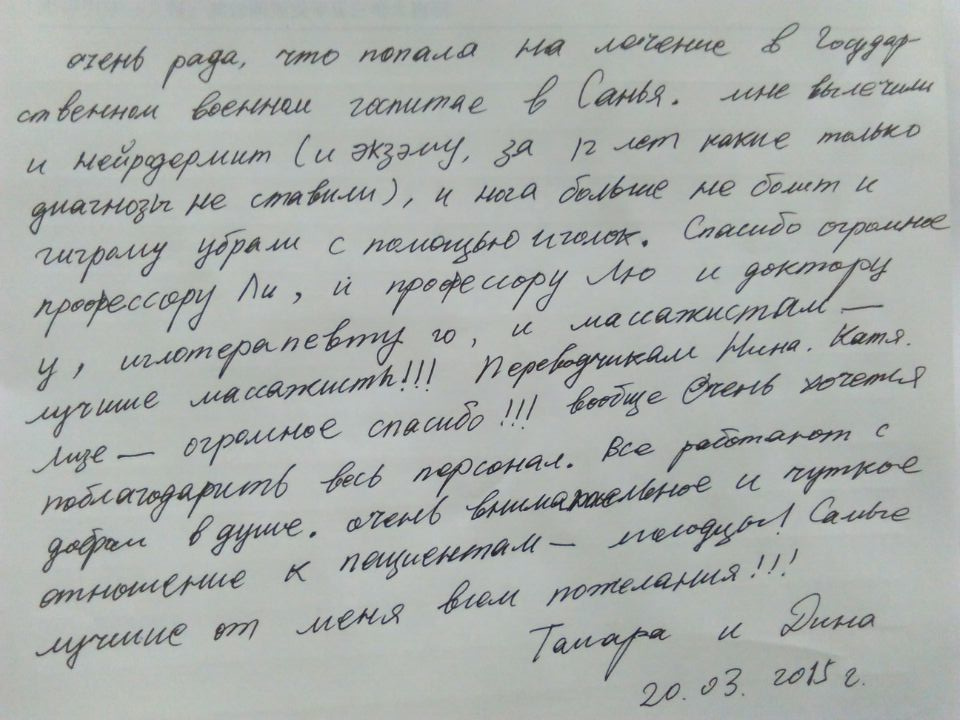 очень рада, что попала на лечение в Государ-
ственном военном госпитае в Санья. мне вылечили
и нейродермит (и экзэму, за 12 лет какие только
диагнозы не ставили), и нога больше не болит и
гигрому убрали с помощью иголок. Спасибо огромное
профессору Ли, и профессору Лю и доктору
у, иглотерапевту го, и массажистам —
лучшие массажисты!!! Переводчикам Нина. Катя.
Лизе — огромное спасибо!!! вообще Очень хочется
поблагодарить весь персонал. Все работают с
добром в душе. очень внимательное и чуткое
отношение к пациентам — молодцы! Самые
лучшие от меня всем пожелания!!!
Тамара и Дина
20.03.2015 г.